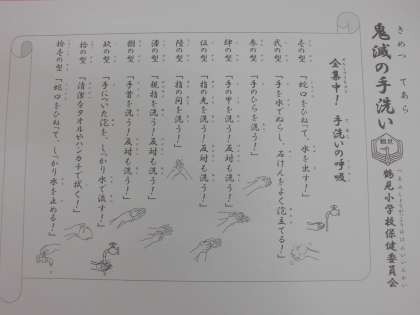 鬼滅の手洗い
きめつ てあら
鶴見小学校保健委員会
全集中! 手洗いの呼吸
壱の型 「蛇口をひねって、水を出す!」
弐の型 「手を水でぬらし、石けんをよく泡立てる!」
参の型 「手のひらを洗う!」
肆の型 「手の甲を洗う!反対も洗う!」
伍の型 「指の先を洗う!反対も洗う!」
陸の型 「指の間を洗う!」
漆の型 「親指を洗う!反対も洗う!」
捌の型 「手首を洗う!反対も洗う!」
玖の型 「手についた泡を、しっかり水で流す!」
拾の型 「清潔なタオルやハンカチで拭く!」
拾壱の型 「蛇口をひねって、しっかり水を止める!」